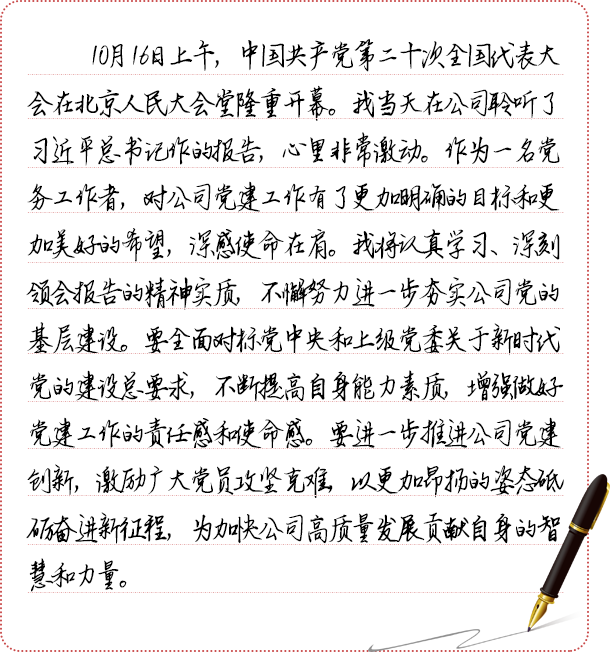 10月16日上午，中国共产党第二十次全国代表大
会在北京人民大会堂隆重开幕。我当天在公司聆听了
习近平总书记作的报告，心里非常激动。作为一名党
务工作者，对公司党建工作有了更加明确的目标和更
加美好的希望，深感使命在肩。我将认真学习、深刻
领会报告的精神实质，不懈努力进一步夯实公司党的
基层建设。要全面对标党中央和上级党委关于新时代
党的建设总要求，不断提高自身能力素质，增强做好
党建工作的责任感和使命感。要进一步推进公司党建
创新，激励广大党员攻坚克难，以更加昂扬的姿态砥
砺奋进新征程，为加快公司高质量发展贡献自身的智
慧和力量。